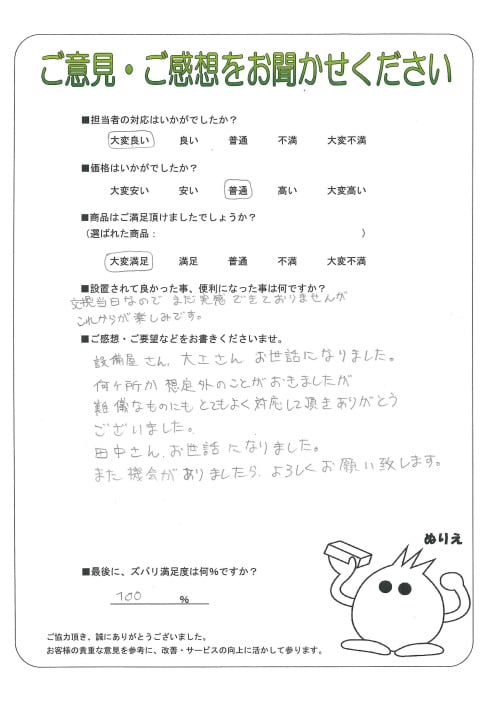 ご意見・ご感想をお聞かせください
■担当者の対応はいかがでしたか？
大変良い 良い 普通 不満 大変不満
■価格はいかがでしたか？
大変安い 安い 普通 高い 大変高い
■商品はご満足頂けましたでしょうか？
（選ばれた商品： ）
大変満足 満足 普通 不満 大変不満
■設置されて良かった事、便利になった事は何ですか？
交換当日なので まだ実感 できておりませんが
これからが楽しみです。
■ご感想・ご要望などをお書きくださいませ。
設備屋さん、大工さん お世話になりました。
何ヶ所か 想定外のことがおきましたが
難儀なものにも とてもよく対応して頂きありがとう
ございました。
田中さん、お世話になりました。
また機会がありましたら、よろしくお願い致します。
ぬりえ
■最後に、ズバリ満足度は何%ですか？
100 %
ご協力頂き、誠にありがとうございました。
お客様の貴重な意見を参考に、改善・サービスの向上に活かして参ります。